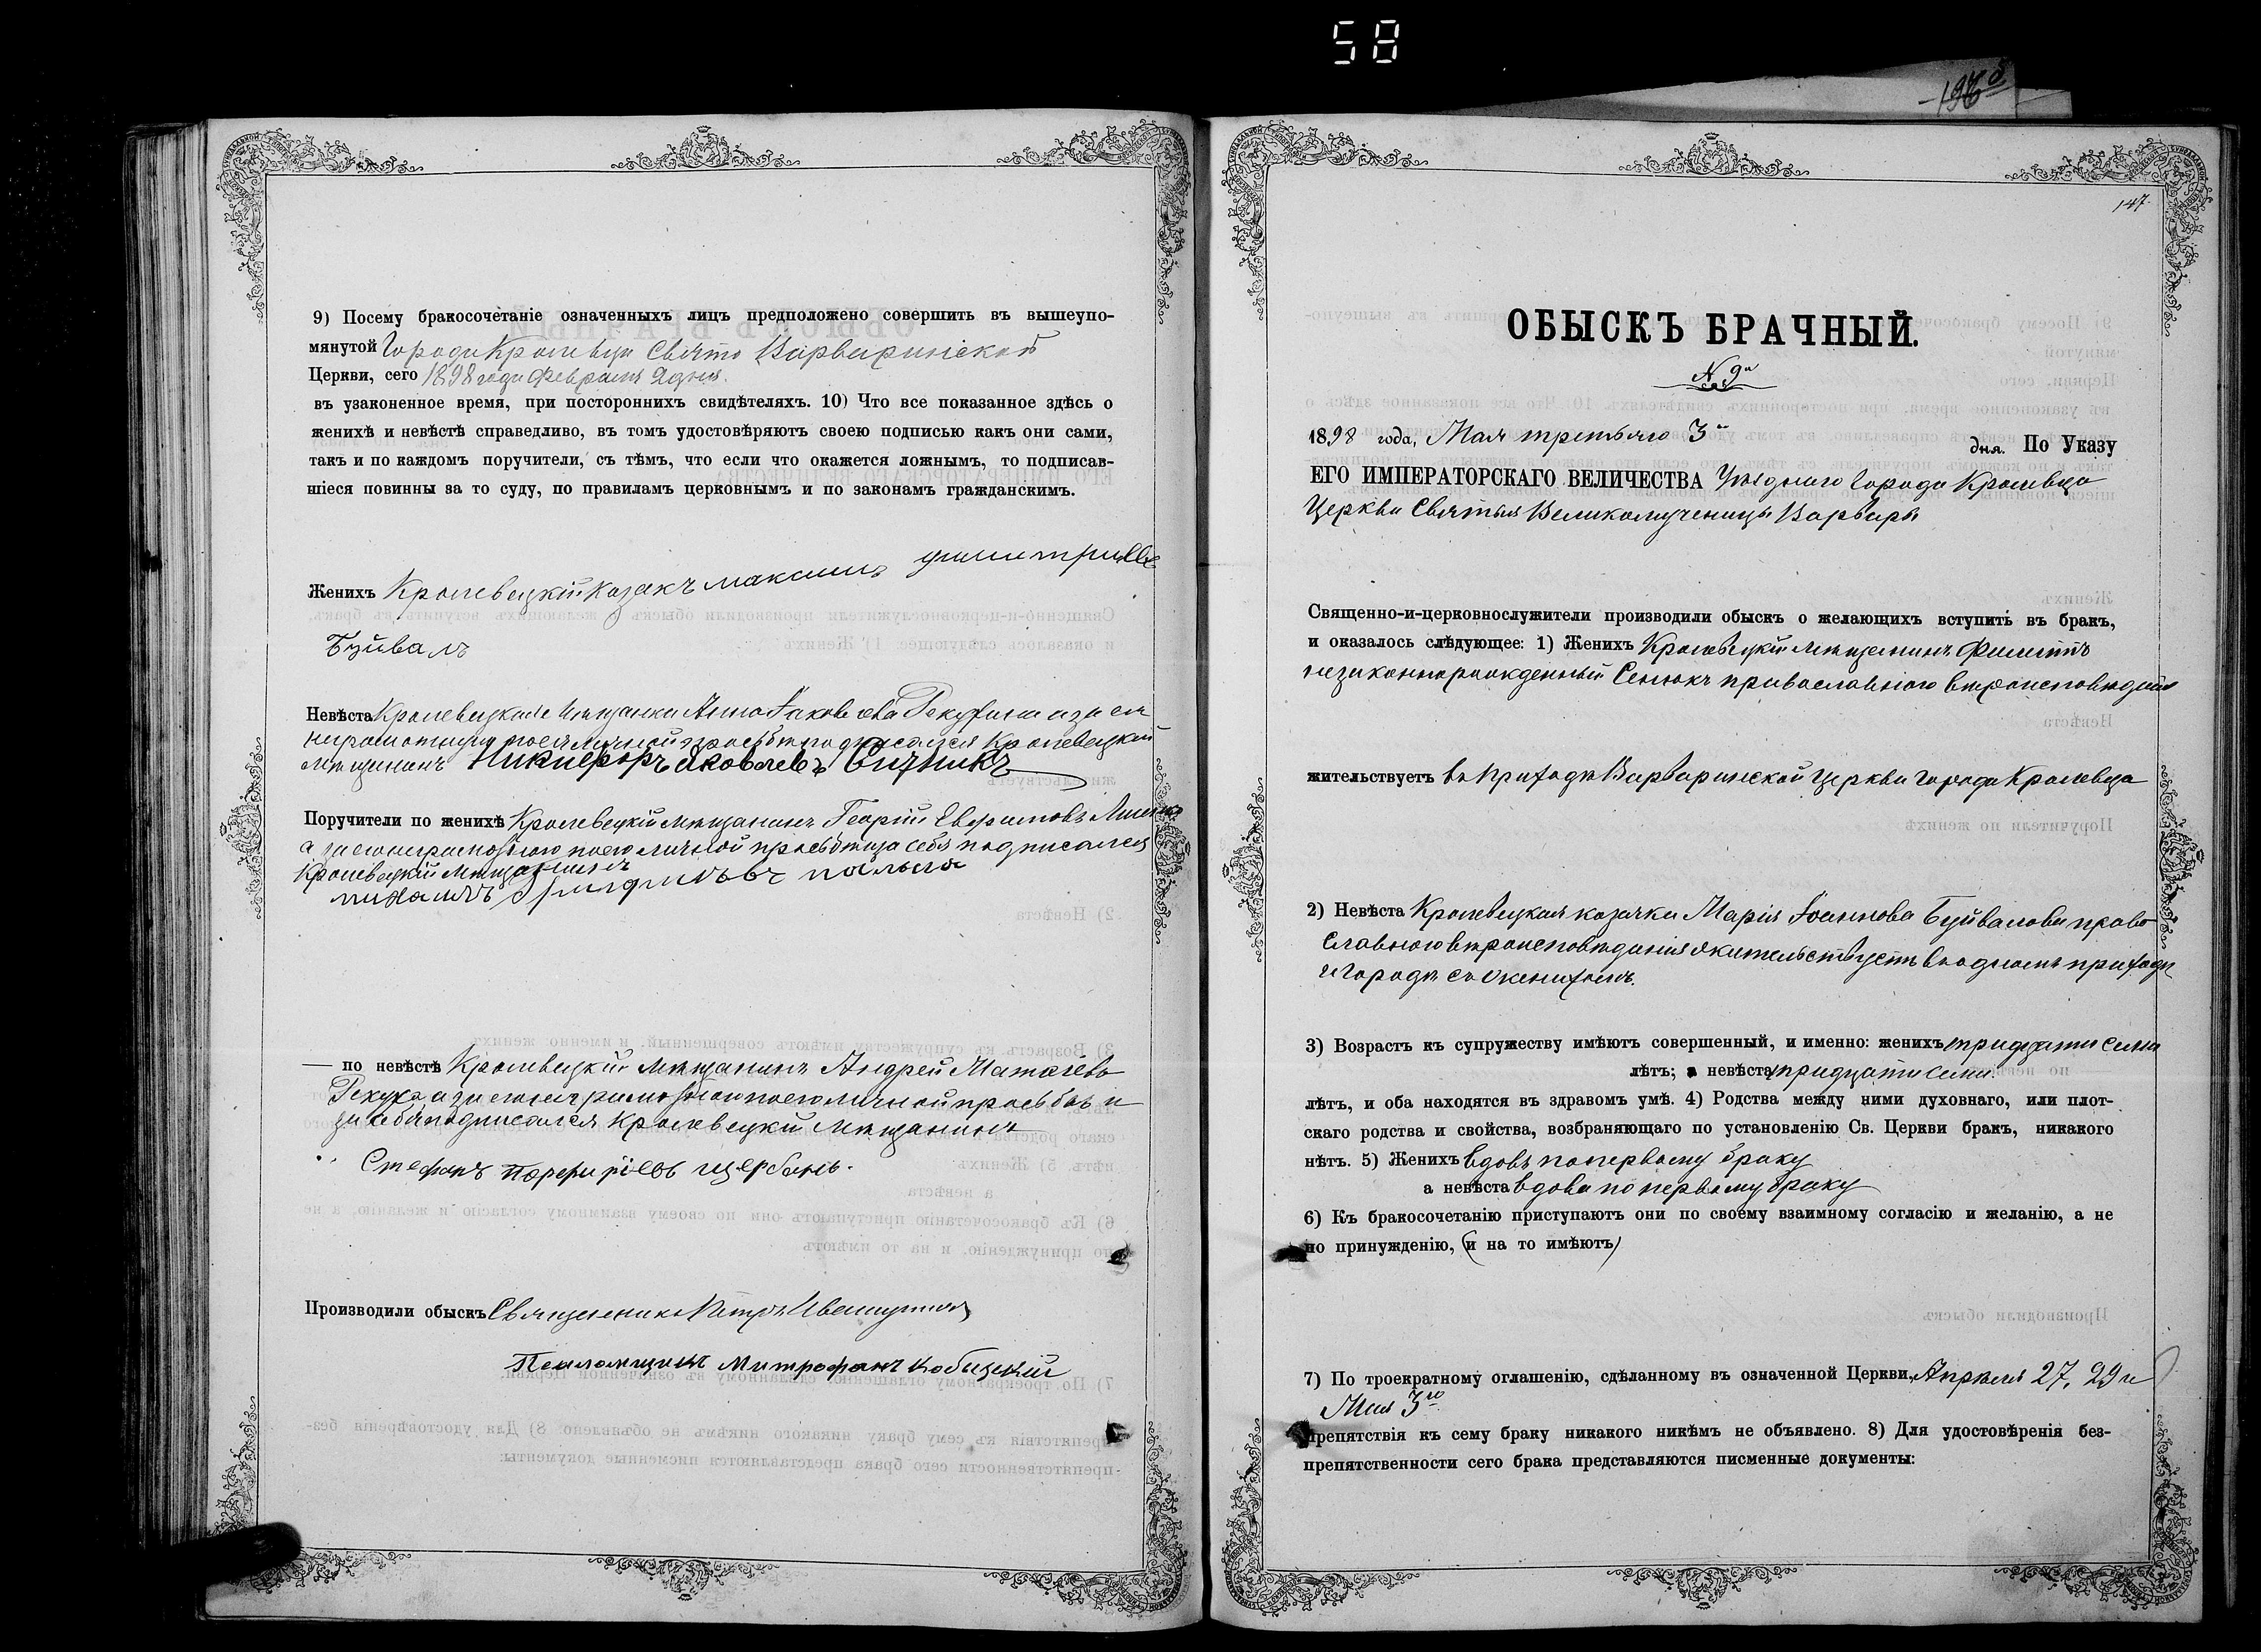 58
147.
9) Посему бракосочетаніе означенныхъ лицъ предположено совершить въ вышеупо-
мянутой Города Кролевца Свято Варваринской
Церкви, сего 1898 года Февраля 2 дня.
въ узаконенное время, при постороннихъ свидѣтеляхъ. 10) Что все показанное здѣсь о
женихѣ и невѣстѣ справедливо, въ томъ удостовѣряютъ своею подписью какъ они сами,
такъ и по каждомъ поручители, съ тѣмъ, что если что окажется ложнымъ, то подписав-
шіеся повинны за то суду, по правиламъ церковнымъ и по законамъ гражданскимъ.
Женихъ Кролевецкій Козакъ Максимъ
Буйвалъ
Невѣста Кролевецкая Мѣщанка Анна Іаковлева а за ея
неграмотную по ея личной просьбѣ подписался Кролевецкій
Мѣщанинъ Никифоръ Яковлевъ
Поручители по женихѣ Кролевецкій Мѣщанинъ Георгій
а за его неграмотного по его личной просьбѣ и за себя подписался
Кролевецкій Мѣщанинъ
по невѣстѣ Кролевецкій Мѣщанинъ Андрей
а за его неграмотного по его личной просьбѣ и
за себя подписался Кролевецкій Мѣщанинъ
Стефанъ Порфиріевъ Щербань.
Производили обыскъ Священникъ Петръ
Псаломщикъ Митрофанъ
ОБЫСКЪ БРАЧНЫЙ.
N 9й
1898 года, Мая третьяго 3го дня. По Указу
ЕГО ИМПЕРАТОРСКАГО ВЕЛИЧЕСТВА Уѣзднаго Города Кролевца
Церкви Святыя Великомученицы Варвары
Священно-и-церковнослужители производили обыскъ о желающихъ вступить въ бракъ,
и оказалось слѣдующее: 1) Женихъ Кролевецкій Мѣщанинъ Филиппъ
незаконнорожденный Сенюкъ православного вѣроисповѣданія
жительствуетъ въ приходѣ Варваринской Церкви Города Кролевца
2) Невѣста Кролевецкая козачка Марія Іоаннова Буйвалова право
славного вѣроисповѣданія жительствуетъ въ одномъ приходѣ
и городѣ съ женихомъ.
3) Возрастъ къ супружеству имѣютъ совершенный, и именно: женихъ тридцати семи
лѣтъ; а невѣста тридцати семи.
лѣтъ, и оба находятся въ здравомъ умѣ. 4) Родства между ними духовнаго, или плот-
скаго родства и свойства, возбраняющаго по установленію Св. Церкви бракъ, никакого
нѣтъ. 5) Женихъ вдовъ по первому браку
а невѣста вдова по первому браку
6) Къ бракосочетанію приступаютъ они по своему взаимному согласію и желанію, а не
по принужденію, (и на то имѣютъ)
7) По троекратному оглашенію, сдѣланному въ означенной Церкви, Апрѣля 27, 29 и
Мая 3го
препятствія къ сему браку никакого никѣмъ не объявлено. 8) Для удостовѣренія без-
препятственности сего брака представляются писменные документы: